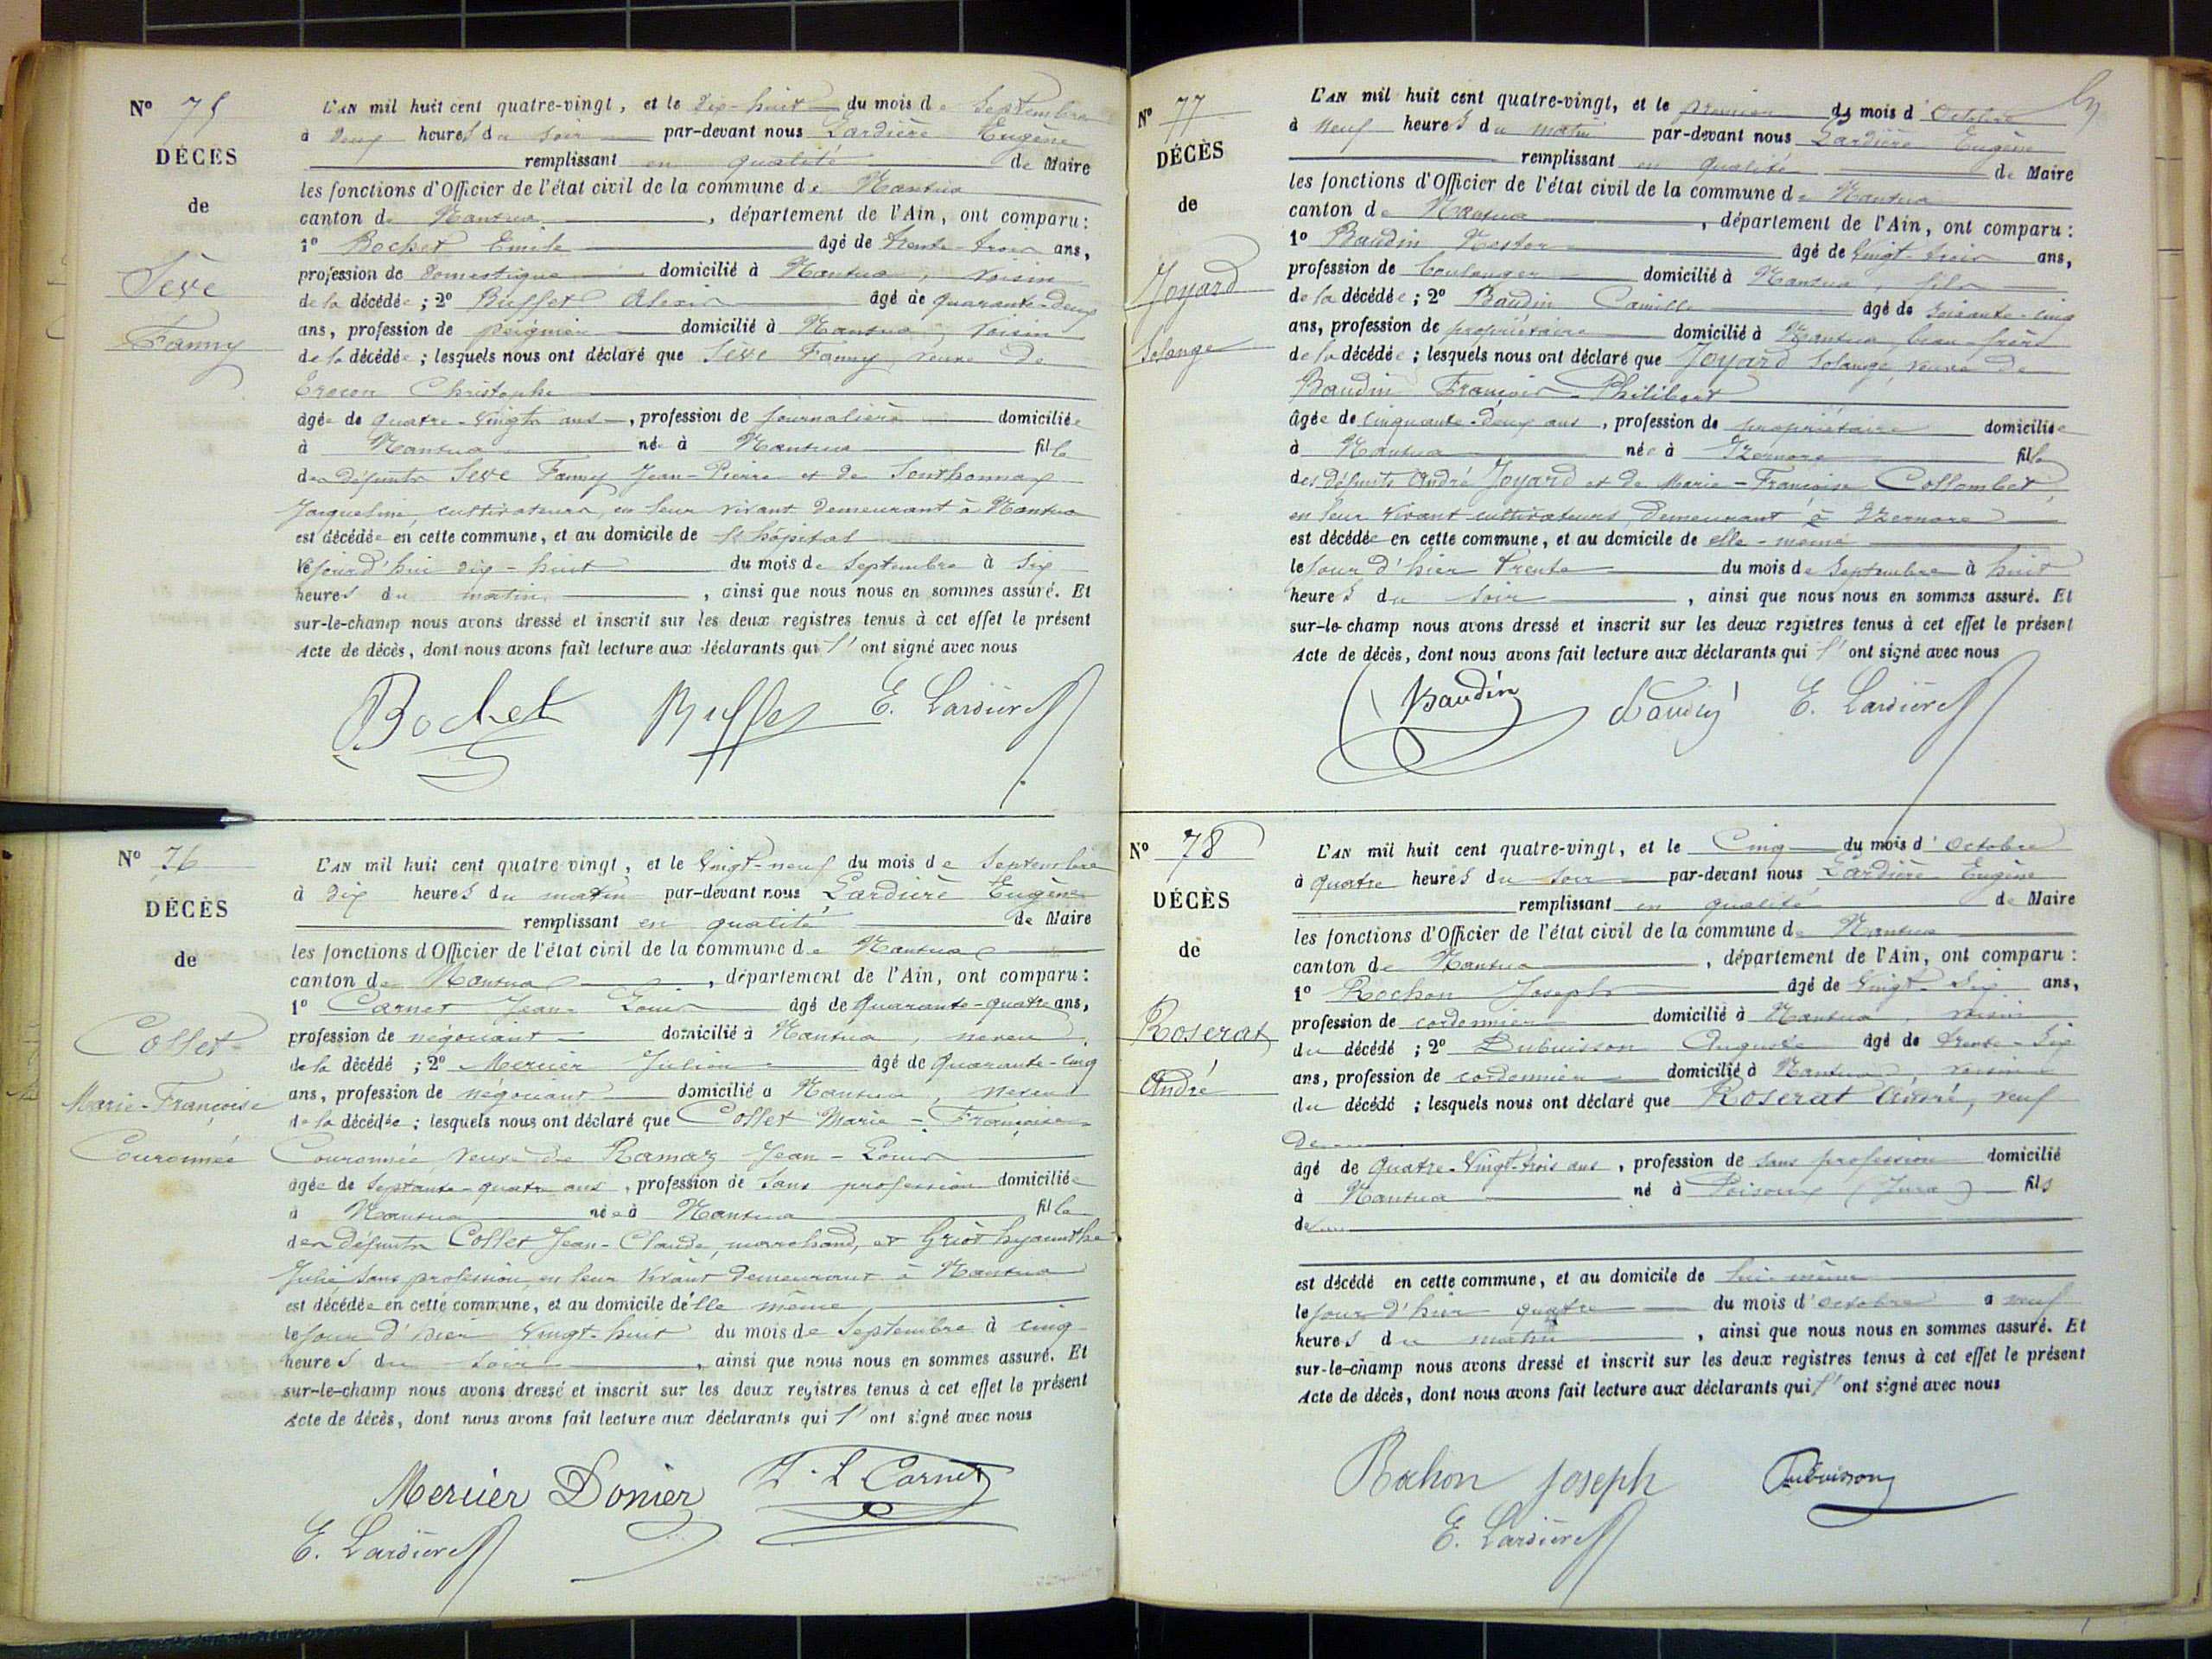 N° 75
DÉCÈS
de
Sève
Fanny
L'AN mil huit cent quatre-vingt, et le dix-huit du mois de Septembre
à deux heures du soir par-devant nous Lardière Eugène
remplissant en qualité de Maire
les fonctions d'Officier de l'état civil de la commune de Nantua
canton de Nantua, département de l'Ain, ont comparu :
1° Bochet Emile âgé de trente-trois ans,
profession de domestique domicilié à Nantua, voisin
de la décédée ; 2° Buffet Alexis âgé de quarante-deux
ans, profession de peignier domicilié à Nantua, voisin
de la décédée ; lesquels nous ont déclaré que Sève Fanny, veuve de
Christophe
âgée de quatre-vingts ans, profession de journalière domiciliée
à Nantua née à Nantua fille
des défunts Sève Fanny Jean-Pierre et de Southonnax
Jacqueline, cultivateurs, en leur vivant demeurant à Nantua
est décédée en cette commune, et au domicile de l'hôpital
le jourd'hui dix-huit du mois de Septembre à six
heures du matin, ainsi que nous nous en sommes assuré. Et
sur-le-champ nous avons dressé et inscrit sur les deux registres tenus à cet effet le présent
Acte de décès, dont nous avons fait lecture aux déclarants qui l' ont signé avec nous
Bochet Buffet E. Lardière
N° 76
DÉCÈS
de
Collet
Marie-Françoise
Couronnée
L'AN mil huit cent quatre vingt, et le vingt-neuf du mois de Septembre
à dix heures du matin par-devant nous Lardière Eugène
remplissant en qualité de Maire
les fonctions d'Officier de l'état civil de la commune de Nantua
canton de Nantua, département de l'Ain, ont comparu :
1° Carnet Jean-Louis âgé de quarante-quatre ans,
profession de négociant domicilié à Nantua, neveu
de la décédé ; 2° Mercier Julien âgé de quarante-cinq
ans, profession de négociant domicilié à Nantua, neveu
de la décédée ; lesquels nous ont déclaré que Collet Marie-Françoise
Couronnée, veuve de Ramaz Jean-Louis
âgée de septante-quatre ans, profession de sans profession domiciliée
à Nantua née à Nantua fille
des défunts Collet Jean-Claude, marchand, et Griot hyacinthe
Julie sans profession, en leur vivant demeurant à Nantua
est décédée en cette commune, et au domicile d'elle même
le jour d'hier vingt-huit du mois de Septembre à cinq
heures du soir, ainsi que nous nous en sommes assuré. Et
sur-le-champ nous avons dressé et inscrit sur les deux registres tenus à cet effet le présent
Acte de décès, dont nous avons fait lecture aux déclarants qui l' ont signé avec nous
Mercier Donier J. L Carnet
E. Lardière
N° 77
DÉCÈS
de
Joyard
Solange
L'AN mil huit cent quatre-vingt, et le premier du mois d'Octobre
à neuf heures du matin par-devant nous Lardière Eugène
remplissant en qualité de Maire
les fonctions d'Officier de l'état civil de la commune de Nantua
canton de Nantua, département de l'Ain, ont comparu :
1° Baudin Nestor âgé de vingt-trois ans,
profession de boulanger domicilié à Nantua, fils
de la décédée ; 2° Baudin Camille âgé de soixante-cinq
ans, profession de propriétaire domicilié à Nantua, beau-frère
de la décédée ; lesquels nous ont déclaré que Joyard Solange, veuve de
Baudin François-Philibert
âgée de cinquante-deux ans, profession de propriétaire domiciliée
à Nantua née à Izernore fille
des défunts André Joyard et de Marie-Françoise Collombet,
en leur vivant cultivateurs, demeurant à Izernore
est décédée en cette commune, et au domicile de elle-même
le jour d'hier trente du mois de Septembre à huit
heures du soir, ainsi que nous nous en sommes assuré. Et
sur-le-champ nous avons dressé et inscrit sur les deux registres tenus à cet effet le présent
Acte de décès, dont nous avons fait lecture aux déclarants qui l' ont signé avec nous
Baudin Baudin E. Lardière
N° 78
DÉCÈS
de
Roserat
André
L'AN mil huit cent quatre-vingt, et le Cinq du mois d'Octobre
à quatre heures du soir par-devant nous Lardière Eugène
remplissant en qualité de Maire
les fonctions d'Officier de l'état civil de la commune de Nantua
canton de Nantua, département de l'Ain, ont comparu :
1° Rochon Joseph âgé de vingt-six ans,
profession de cordonnier domicilié à Nantua, voisin
du décédé ; 2° Dubuisson Auguste âgé de trente-six
ans, profession de cordonnier domicilié à Nantua, voisin
du décédé ; lesquels nous ont déclaré que Roserat André, veuf
de
âgé de quatre-vingt-trois ans, profession de sans profession domicilié
à Nantua né à Poisoux (Jura) fils
de
est décédé en cette commune, et au domicile de lui-même
le jour d'hier quatre du mois d'octobre à neuf
heures du matin, ainsi que nous nous en sommes assuré. Et
sur-le-champ nous avons dressé et inscrit sur les deux registres tenus à cet effet le présent
Acte de décès, dont nous avons fait lecture aux déclarants qui l' ont signé avec nous
Rochon Joseph Dubuisson
E. Lardière